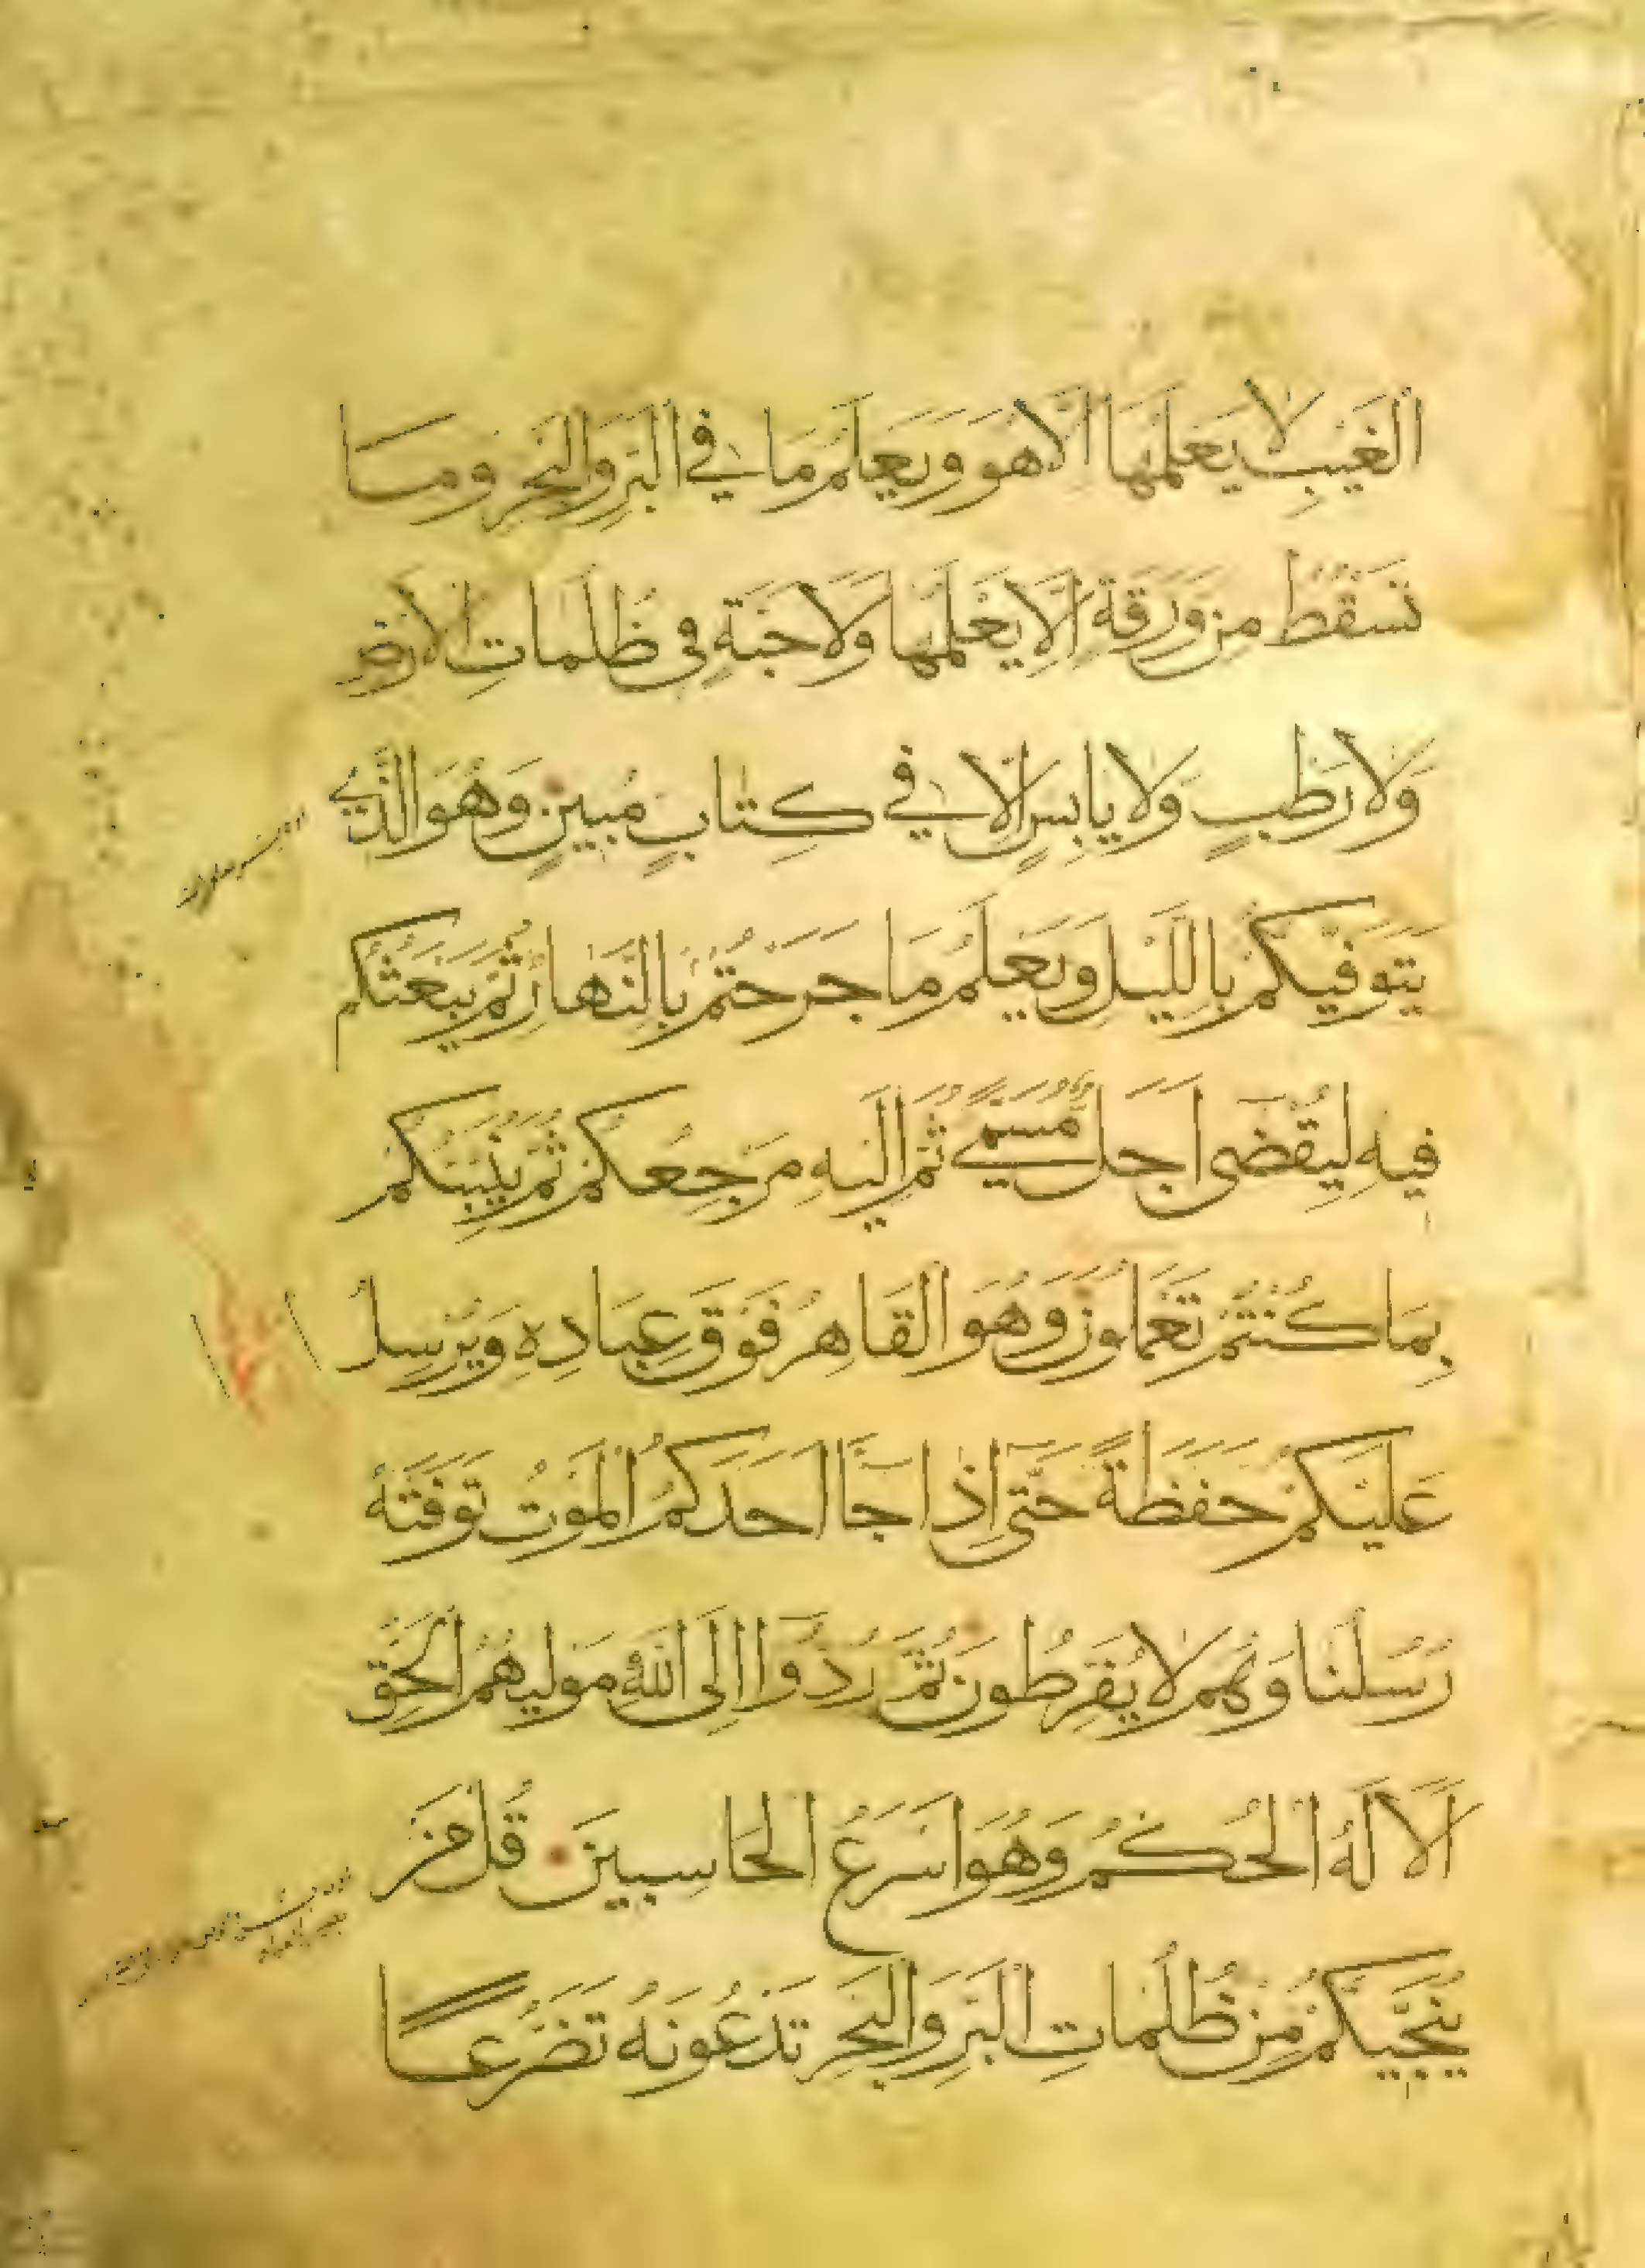 الغَيْبِ لَا يَعْلَمُهَا اِلَّا هُوَ وَيَعْلَمُ مَا فِي البَرِّ وَالبَحْرِ وَمَا
تَسْقُطُ مِن وَرَقَةٍ اِلَّا يَعْلَمُهَا وَلَا حَبَّةٍ فِى ظُلُمَاتِ الاَرْضِ
وَلَا رَطْبٍ وَلَا يَابِسٍ اِلَّا فِي كِتَابٍ مُبِينٍ وَهُوَ الَّذِي
يَتَوَفّيكُمْ بِاللَّيْلِ وَيَعْلَمُ مَا جَرَحْتُمْ بِالنَّهَارِ ثُمَّ يَبْعَثُكُم
فِيهِ لِيُقْضَى اَجَلٌ مُسَمًّى ثُمَّ اِلَيْهِ مَرْجِعُكُمْ ثُمَّ يُنَبِّئُكُمْ
بِمَا كُنْتُمْ تَعْمَلُونَ وَهُوَ القَاهِرُ فَوْقَ عِبَادِهِ وَيُرْسِلُ
عَلَيْكُمْ حَفَظَةً حَتَّى اِذَا جَا اَحَدَكُمُ المَوْتُ تَوَفَّتْهُ
رُسُلُنَا وَهُمْ لَا يُفَرِّطُونَ ثُمَّ رُدُّوا اِلَى اللّهِ مَوْلَيهُمُ الحَقِّ
اَلَا لَهُ الحُكْمُ وَهُوَ اَسْرَعُ الحَاسِبِينَ قُلْ مَن
يُنَجِّيكُمْ مِن ظُلُمَاتِ البَرِّ وَالبَحْرِ تَدْعُونَهُ تَضَرُّعًا